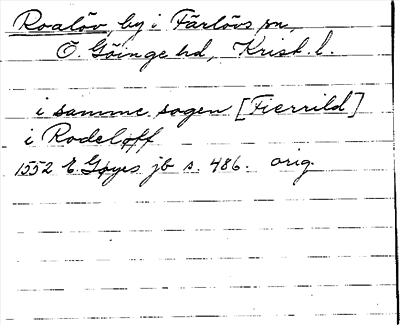 Roalöv, by i Färlövs sn
Ö. Göinge hd, Krist. l.
i samme sogen [Fierrild]
i Rodeloff
1552 E. Gøyes jb s. 486. orig.